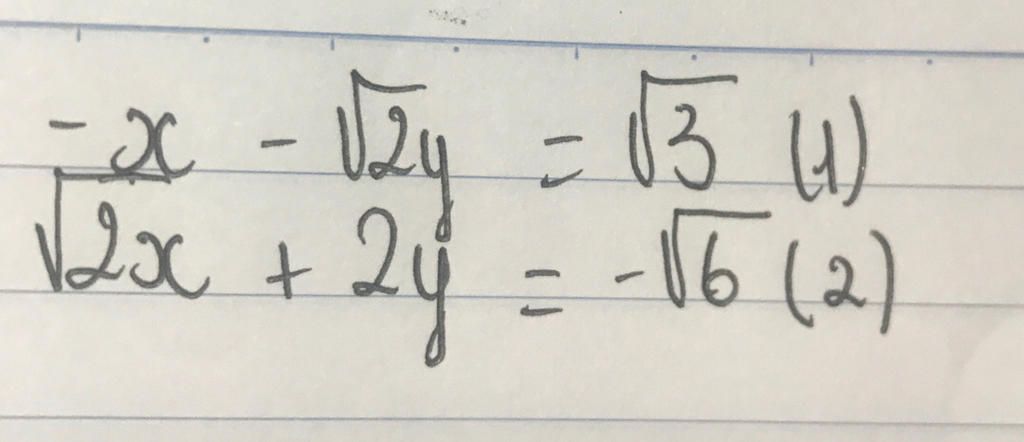 -x - √2y = √3 (1)
√2x + 2y = -√6 (2)